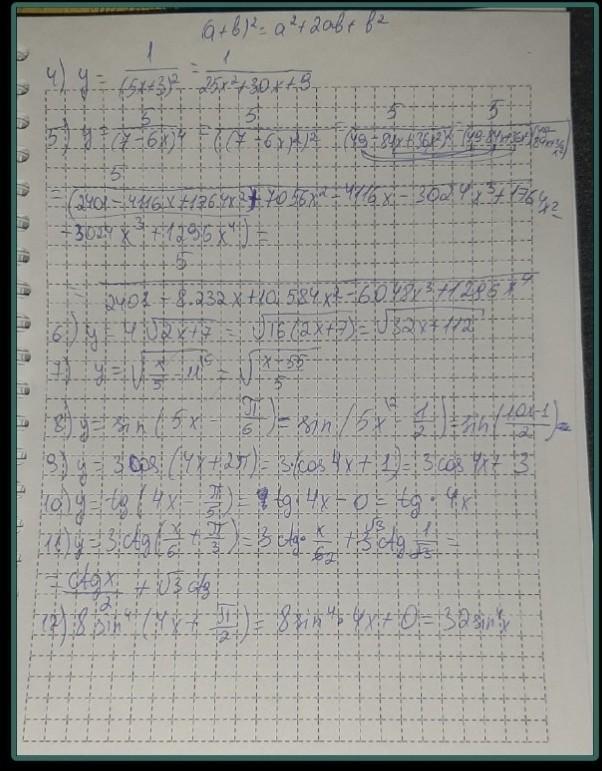 (a+b)² = a²+2ab+b²
4) y = 1/(5x+3)² = 1/25x²+30x+9
5) y = 5/(7-6x)⁴ = 5/((7-6x)²)² = 5/(49-84x+36x²)² = 5/(49-84x+36x²)
= 5/(2401-4116x+1764x²+7056x²-4116x-3024x³+1764x²
-3024x³+1296x⁴) =
= 5/2401-8.232x+10.584x²-6048x³+1296x⁴
6) y = 4√2x+7 = √16(2x+7) = √32x+112
7) y = √x/5-11 = √x-55/5
8) y = sin(5x-π/6) = sin(5x-1/2) = sin(10x-1/2) =
9) y = 3cos(4x+2π) = 3(cos4x+1) = 3cos4x+3
10) y = tg(4x-π/5) = tg·4x-0 = tg·4x
11) y = 3ctg(x/6+π/3) = 3ctg·x/6 2+3ctg 1/√3 =
= ctgx/2+√3ctg
12) 8sin⁴(4x+π/2) = 8sin⁴·4x+0 = 32sin⁴x